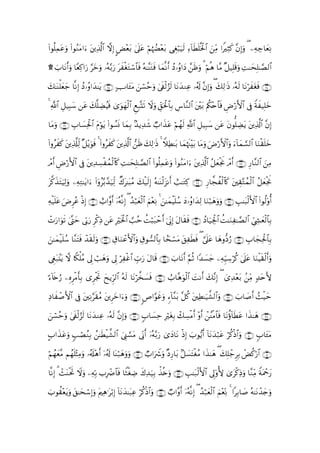 نِعَاجِهِۦ ۖ وَإِنَّ كَثِيرًا مِّنَ ٱلْخُلَطَآءِ لَيَبْغِى بَعْضُهُمْ عَلَىٰ بَعْضٍ إِلَّا ٱلَّذِينَ ءَامَنُوا۟ وَعَمِلُوا۟
ٱلصَّـٰلِحَـٰتِ وَقَلِيلٌ مَّا هُمْ ۗ وَظَنَّ دَاوُۥدُ أَنَّمَا فَتَنَّـٰهُ فَٱسْتَغْفَرَ رَبَّهُۥ وَخَرَّ رَاكِعًا وَأَنَابَ ۩
فَغَفَرْنَا لَهُۥ ذَٰلِكَ ۖ وَإِنَّ لَهُۥ عِندَنَا لَزُلْفَىٰ وَحُسْنَ مَـَٔابٍ يَـٰدَاوُۥدُ إِنَّا جَعَلْنَـٰكَ
خَلِيفَةً فِى ٱلْأَرْضِ فَٱحْكُم بَيْنَ ٱلنَّاسِ بِٱلْحَقِّ وَلَا تَتَّبِعِ ٱلْهَوَىٰ فَيُضِلَّكَ عَن سَبِيلِ ٱللَّهِ ۚ
إِنَّ ٱلَّذِينَ يَضِلُّونَ عَن سَبِيلِ ٱللَّهِ لَهُمْ عَذَابٌ شَدِيدٌۢ بِمَا نَسُوا۟ يَوْمَ ٱلْحِسَابِ وَمَا
خَلَقْنَا ٱلسَّمَآءَ وَٱلْأَرْضَ وَمَا بَيْنَهُمَا بَـٰطِلًا ۚ ذَٰلِكَ ظَنُّ ٱلَّذِينَ كَفَرُوا۟ ۚ فَوَيْلٌ لِّلَّذِينَ كَفَرُوا۟
مِنَ ٱلنَّارِ أَمْ نَجْعَلُ ٱلَّذِينَ ءَامَنُوا۟ وَعَمِلُوا۟ ٱلصَّـٰلِحَـٰتِ كَٱلْمُفْسِدِينَ فِى ٱلْأَرْضِ أَمْ
نَجْعَلُ ٱلْمُتَّقِينَ كَٱلْفُجَّارِ كِتَـٰبٌ أَنزَلْنَـٰهُ إِلَيْكَ مُبَـٰرَكٌ لِّيَدَّبَّرُوٓا۟ ءَايَـٰتِهِۦ وَلِيَتَذَكَّرَ
أُو۟لُوا۟ ٱلْأَلْبَـٰبِ وَوَهَبْنَا لِدَاوُۥدَ سُلَيْمَـٰنَ ۚ نِعْمَ ٱلْعَبْدُ ۖ إِنَّهُۥٓ أَوَّابٌ إِذْ عُرِضَ عَلَيْهِ
بِٱلْعَشِىِّ ٱلصَّـٰفِنَـٰتُ ٱلْجِيَادُ فَقَالَ إِنِّىٓ أَحْبَبْتُ حُبَّ ٱلْخَيْرِ عَن ذِكْرِ رَبِّى حَتَّىٰ تَوَارَتْ
بِٱلْحِجَابِ رُدُّوهَا عَلَىَّ ۖ فَطَفِقَ مَسْحًۢا بِٱلسُّوقِ وَٱلْأَعْنَاقِ وَلَقَدْ فَتَنَّا سُلَيْمَـٰنَ
وَأَلْقَيْنَا عَلَىٰ كُرْسِيِّهِۦ جَسَدًا ثُمَّ أَنَابَ قَالَ رَبِّ ٱغْفِرْ لِى وَهَبْ لِى مُلْكًا لَّا يَنۢبَغِى
لِأَحَدٍ مِّنۢ بَعْدِىٓ ۖ إِنَّكَ أَنتَ ٱلْوَهَّابُ فَسَخَّرْنَا لَهُ ٱلرِّيحَ تَجْرِى بِأَمْرِهِۦ رُخَآءً
حَيْثُ أَصَابَ وَٱلشَّيَـٰطِينَ كُلَّ بَنَّآءٍ وَغَوَّاصٍ وَءَاخَرِينَ مُقَرَّنِينَ فِى ٱلْأَصْفَادِ
هَـٰذَا عَطَآؤُنَا فَٱمْنُنْ أَوْ أَمْسِكْ بِغَيْرِ حِسَابٍ وَإِنَّ لَهُۥ عِندَنَا لَزُلْفَىٰ وَحُسْنَ
مَـَٔابٍ وَٱذْكُرْ عَبْدَنَآ أَيُّوبَ إِذْ نَادَىٰ رَبَّهُۥٓ أَنِّى مَسَّنِىَ ٱلشَّيْطَـٰنُ بِنُصْبٍ وَعَذَابٍ
ٱرْكُضْ بِرِجْلِكَ ۖ هَـٰذَا مُغْتَسَلٌۢ بَارِدٌ وَشَرَابٌ وَوَهَبْنَا لَهُۥٓ أَهْلَهُۥ وَمِثْلَهُم مَّعَهُمْ
رَحْمَةً مِّنَّا وَذِكْرَىٰ لِأُو۟لِى ٱلْأَلْبَـٰبِ وَخُذْ بِيَدِكَ ضِغْثًا فَٱضْرِب بِّهِۦ وَلَا تَحْنَثْ ۗ إِنَّا
وَجَدْنَـٰهُ صَابِرًا ۚ نِّعْمَ ٱلْعَبْدُ ۖ إِنَّهُۥٓ أَوَّابٌ وَٱذْكُرْ عِبَـٰدَنَآ إِبْرَٰهِيمَ وَإِسْحَـٰقَ وَيَعْقُوبَ